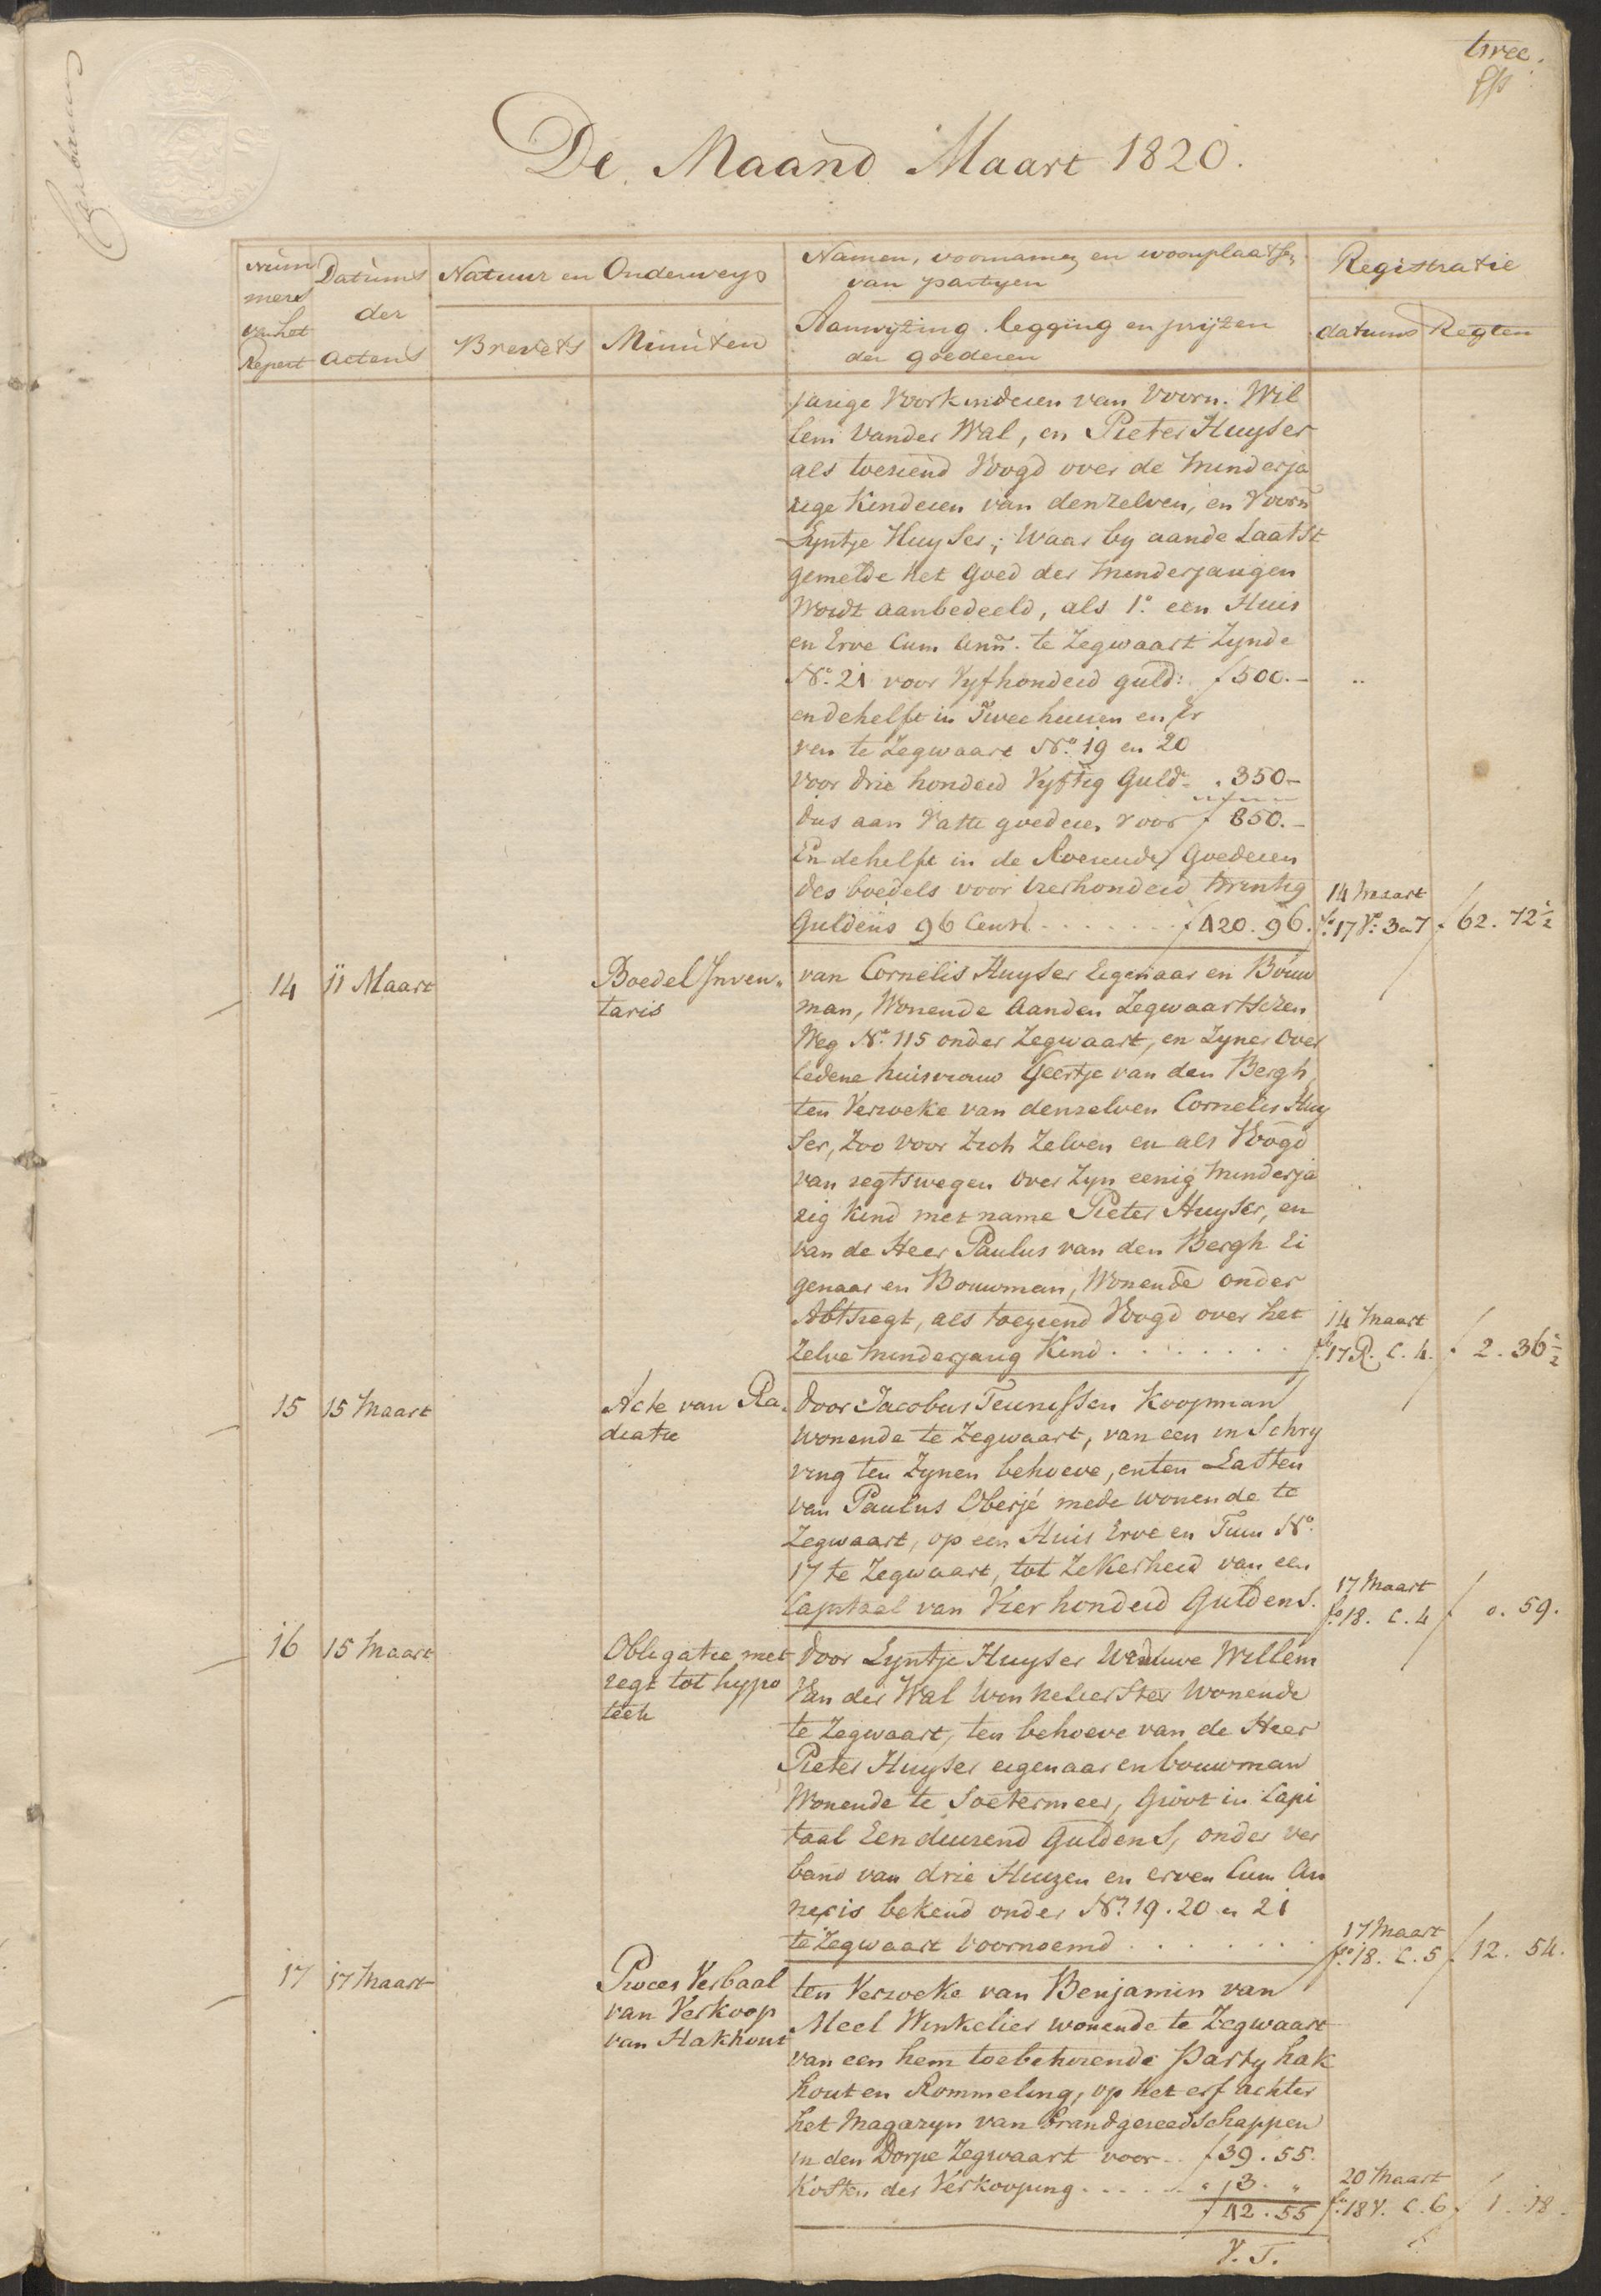 twee.
De Maand Maart 1820.
Num
mers
van het
Repert
Datums
der
actens
Natuur en Onderweys
Brevets
Minuten
Namen, voornamen en woonplaatsen
van partyen
Aanwyzing legging en prijzen
der goederen
Registratie
datums
Regten
jarige Voorkinderen van Voorn. Wil
lem Vander Wal, en Pieter Huyser
als toeziend Voogd over de Minderja
rige Kinderen van denzelven, en Voorn
Lyntje Huyser; Waar by aande Laatst
gemelde het Goed der Minderjarigen
Wordt aanbedeeld, als 1o. een Huis
en Erve Cum Ann. te Zegwaart Zynde
No. 21 voor Vyfhonderd guld: f 500.-
en de helft in Twee huizen en Er
ven te Zegwaart No. 19 en 20
voor drie honderd Vyftig Guld- . 350-
dus aan Vaste goederen voor f 850.-
En de helft in de Roerende Goederen
des boedels voor Vierhonderd twintig
Guldens 96 Cents . . . . . . . f 420. 96.
14 Maart
fo. 17 Vo. 3 en 7
f 62. 72 1/2
14
11 Maart
Boedel Inven
taris
van Cornelis Huyser Eigenaar en Bouw
man, Wonende aanden Zegwaartschen
Weg No. 115 onder Zegwaart, en Zyner Over
ledene huisvrouw Geertje van den Bergh
ten Verzoeke van denzelven Cornelis Huy
ser, Zoo voor Zich Zelven en als Voogd
van regtswegen over Zyn eenig Minderja
rig Kind met name Pieter Huyser, en
van de Heer Paulus van den Bergh Ei
genaar en Bouwman, Wonende onder
Abtsregt, als toeziend Voogd over het
Zelve Minderjarig Kind . . . . . . .
14 Maart
fo. 17 R. C. 4.
f 2. 36 1/2
15
15 Maart
Acte van Ra
diatie
door Jacobus Teunissen Koopman
wonende te Zegwaart, van een inSchry
ving ten Zynen behoeve, en ten Lasten
van Paulus Oberjé mede wonende te
Zegwaart, op een Huis Erve en Tuin No.
17 te Zegwaart, tot Zekerheid van een
Capitaal van Vier honderd Guldens.
17 Maart
fo. 18. C. 4
f 0. 59.
16
15 Maart
Obligatie met
regt tot hypo
teek
door Lyntje Huyser Weduwe Willem
Van der Wal Winkelierster Wonende
te Zegwaart, ten behoeve van de Heer
Pieter Huyser eigenaar en bouwman
Wonende te Soetermeer, Groot in Capi
taal Een duizend Guldens, onder ver
band van drie Huizen en erven Cum An
nexis bekend onder No. 19. 20 en 21
te Zegwaart Voornoemd . . . . . . .
17 Maart
fo. 18. C. 5
f 12. 54.
17
17 Maart
Proces Verbaal
van Verkoop
van Hakhout
ten Verzoeke van Benjamin van
Meel Winkelier wonende te Zegwaart
van een hem toebehorende Party hak
hout en Rommeling, op het erf achter
het Magazyn van brandgereedschappen
in den Dorpe Zegwaart voor . . f 39. 55.
Kosten der Verkooping . . . . . " 3. "
f 42. 55
20 Maart
fo. 18 V. C. 6
f 1. 18.
V. T.